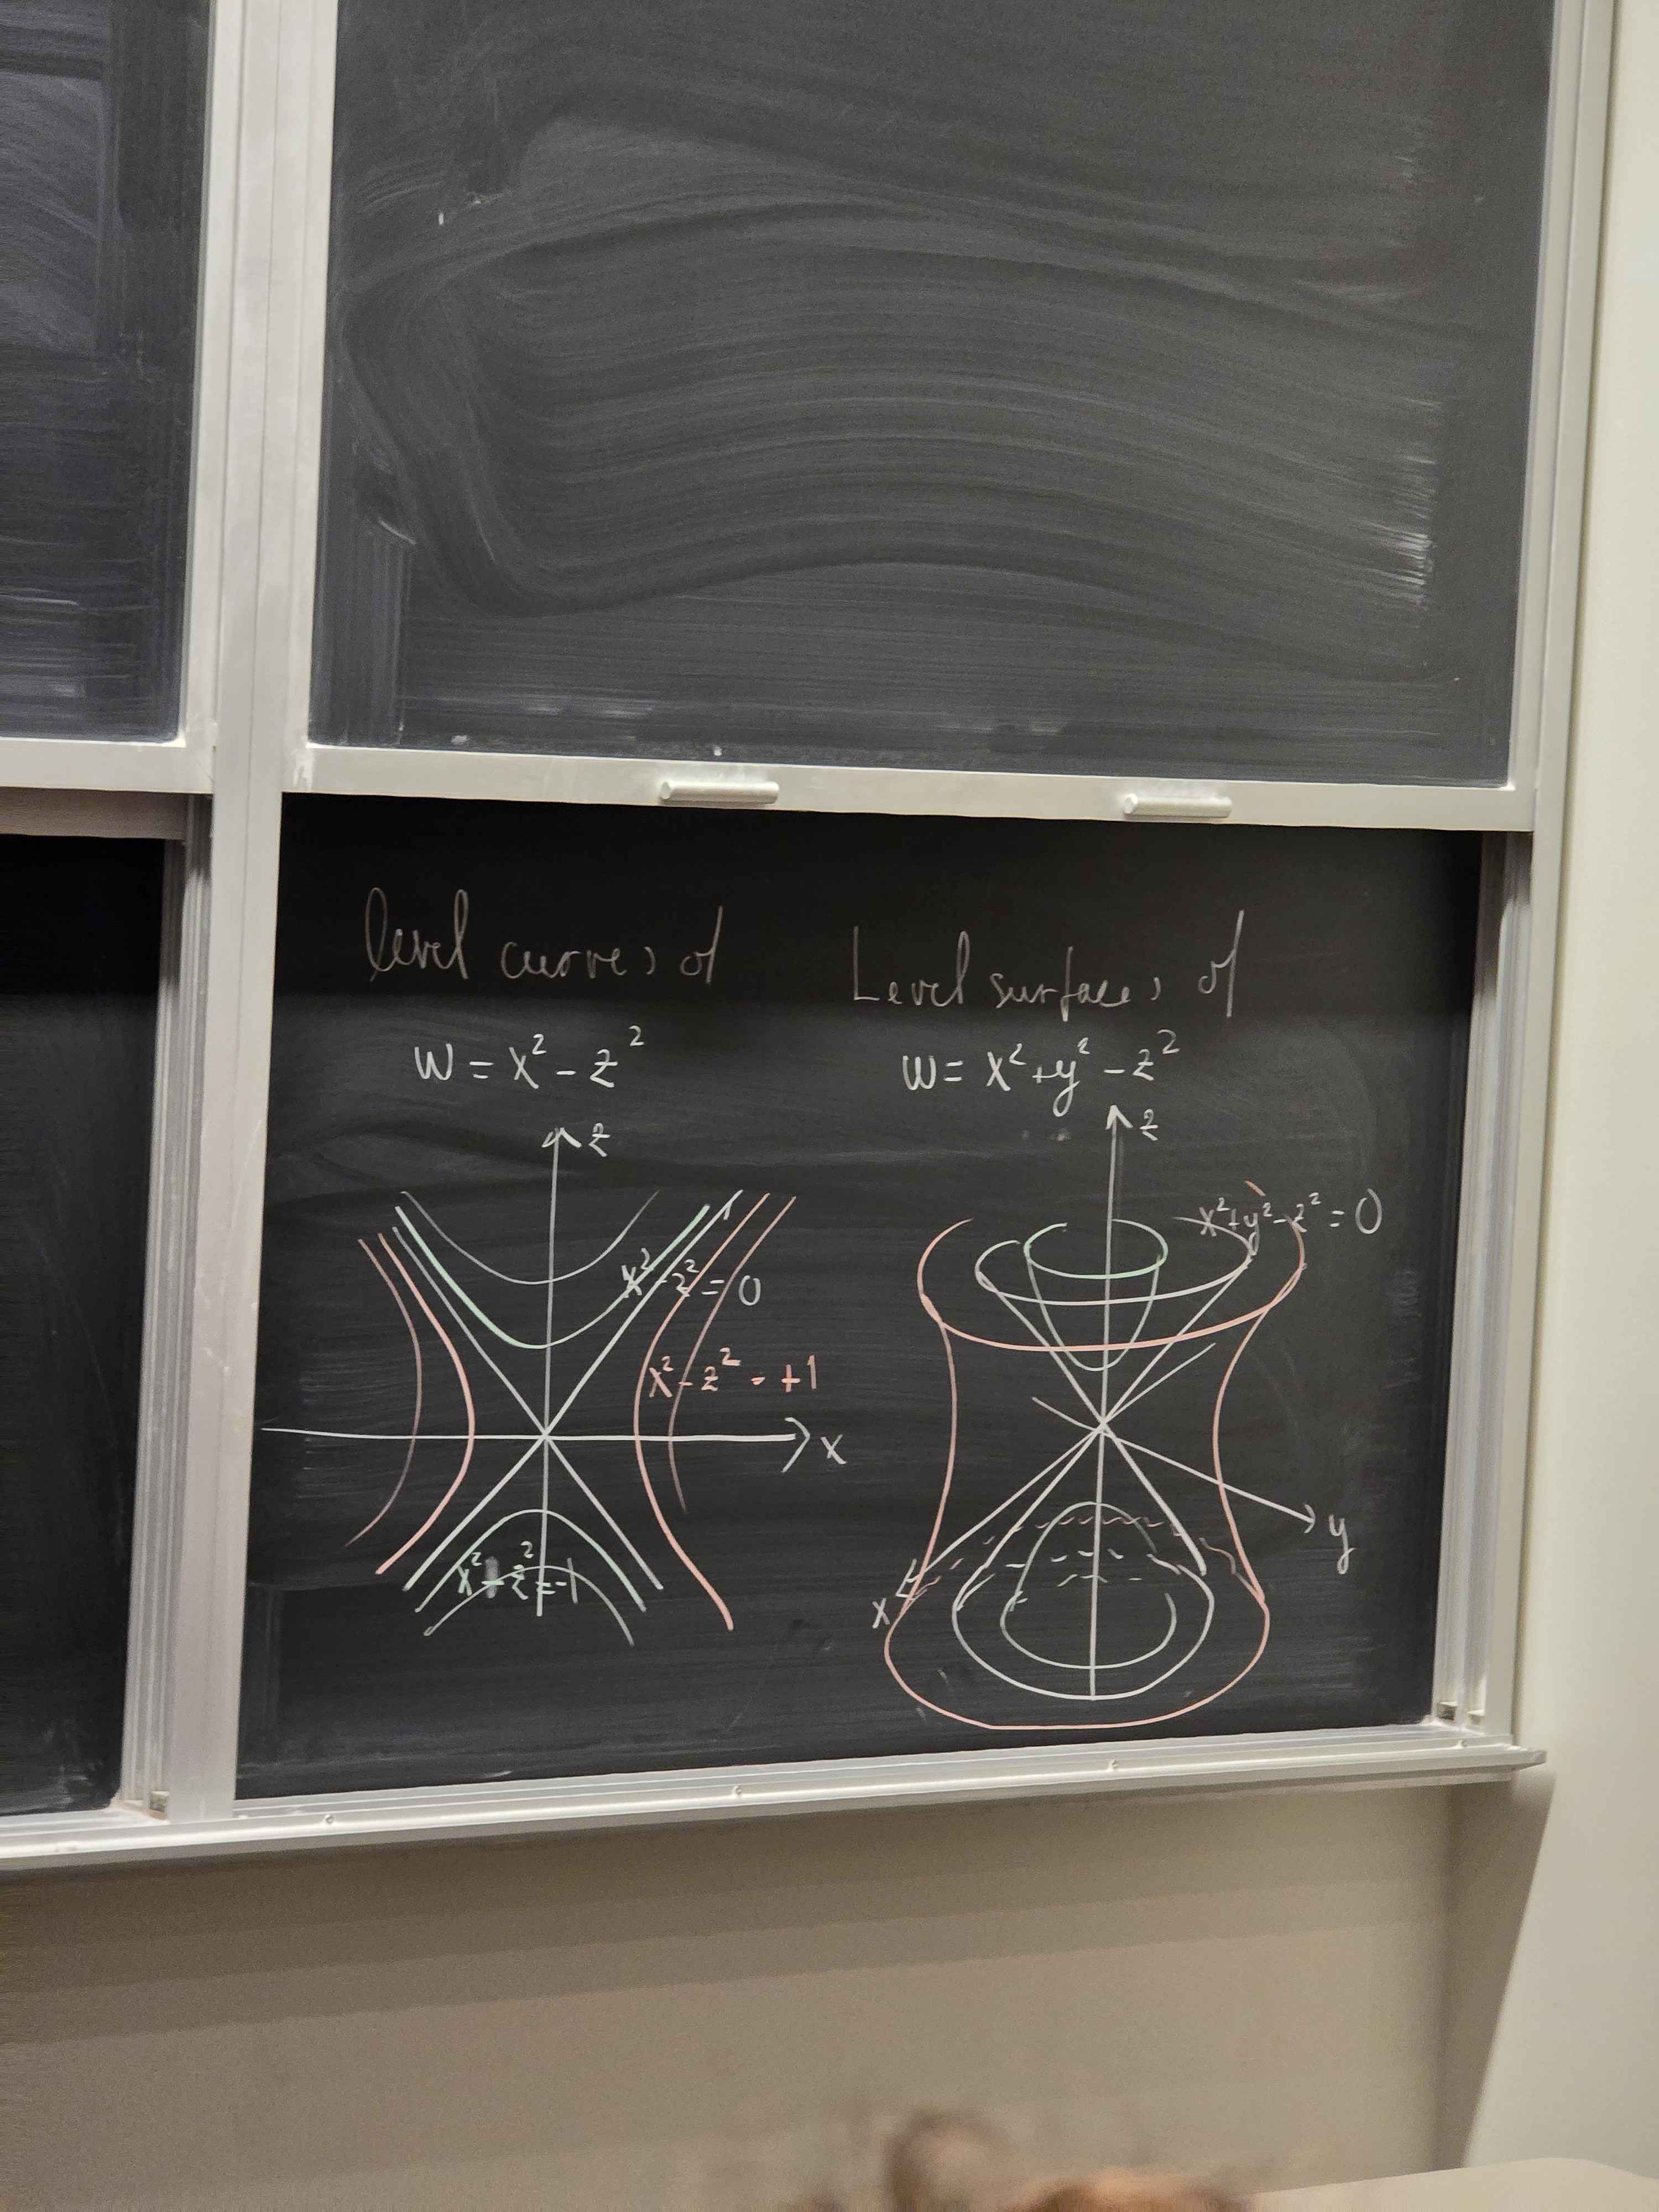 level curves of
w = x² - z²
z
x² - z² = 0
x² - z² = +1
x
x² - z² = -1
Level surfaces of
w = x² + y² - z²
z
x² + y² - z² = 0
y
x